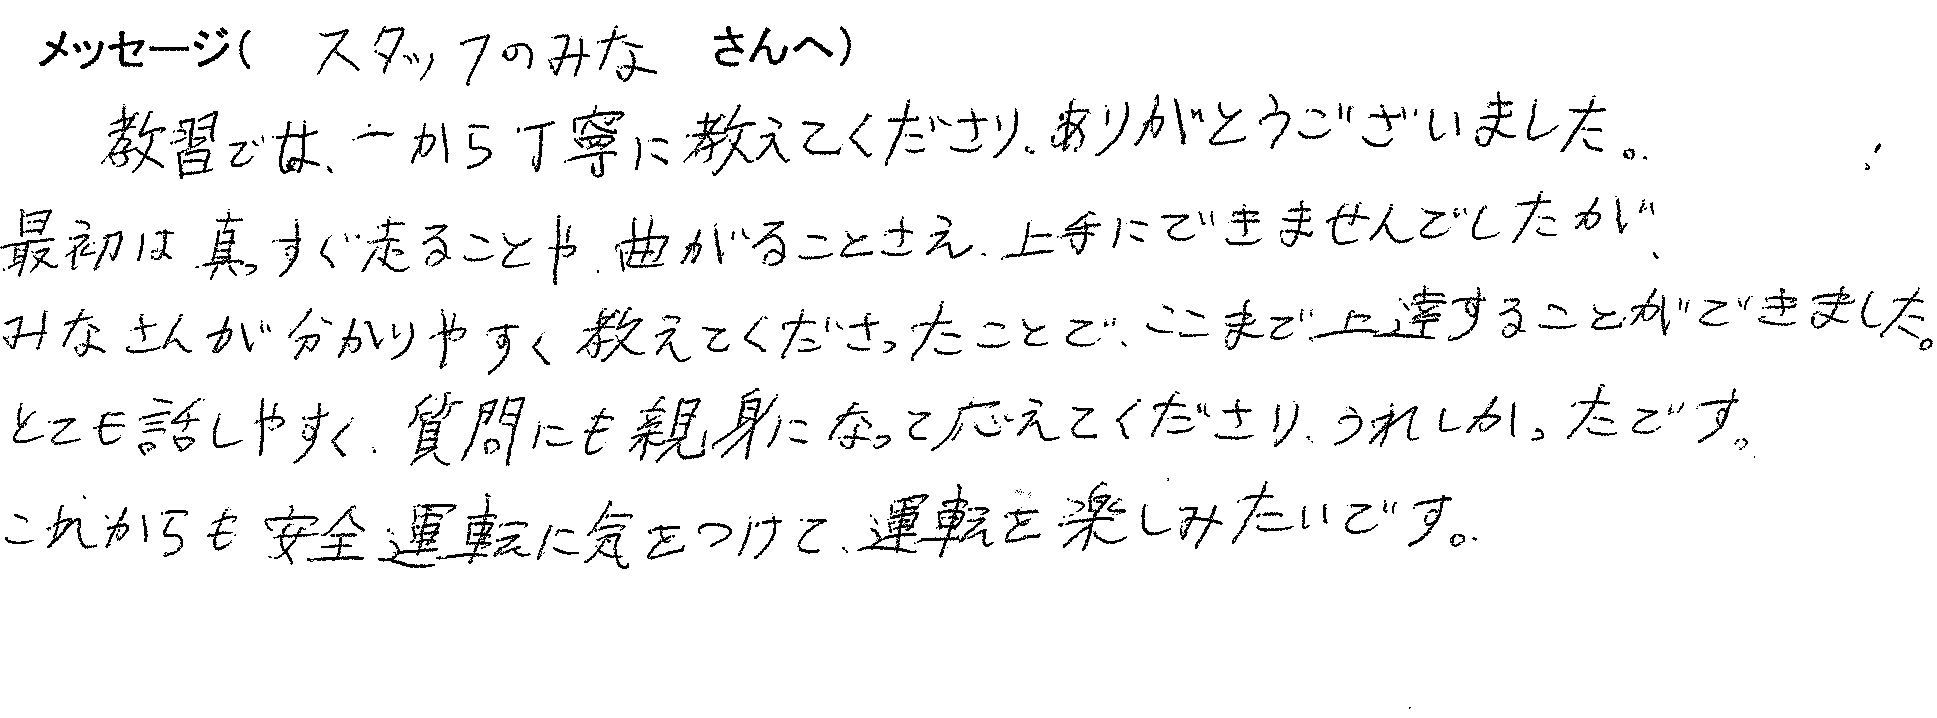 メッセージ( スタッフのみな さんへ)
教習では、一から丁寧に教えてくださり、ありがとうございました。
最初は真っすぐ走ることや、曲がることさえ、上手にできませんでしたが、
みなさんが分かりやすく教えてくださったことで、ここまで上達することができました。
とても話しやすく、質問にも親身になって応えてくださり、うれしかったです。
これからも安全運転に気をつけて、運転を楽しみたいです。